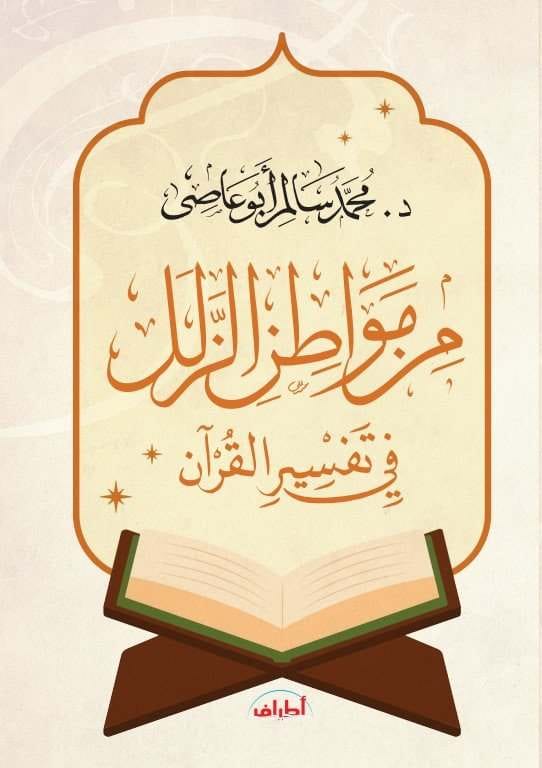 د. مُحَمَّد سَالِم أَبُو عَاصِي
مِن مَوَاطِنِ الزَّلَل
فِي تَفْسِيرِ القُرْآن
أطياف